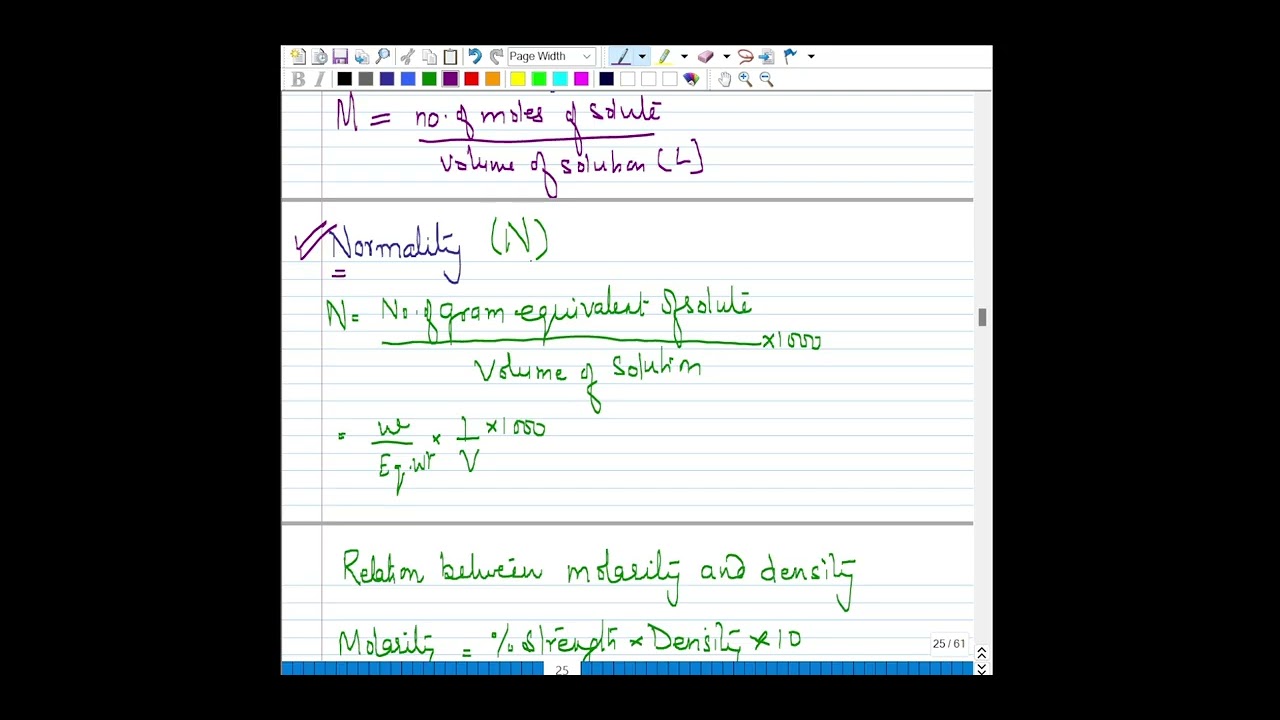 Page Width
B I
M = no. of moles of solute
volume of solution (L]
Normality (N)
N = No. of gram equivalent of solute ×1000
Volume of Solution
= w × 1 ×1000
Eq. wt V
Relation between molarity and density
Molarity = % strength × Density × 10
25 / 61
25